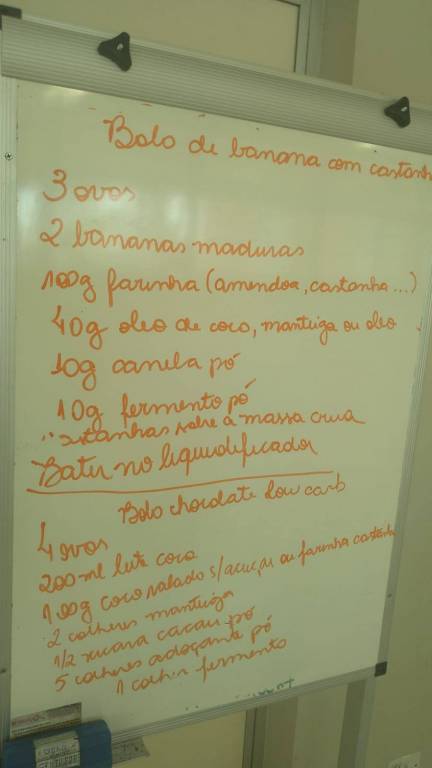 Bolo de banana com castanh
3 ovos
2 bananas maduras
100g farinha (amendoa, castanha...)
40g oleo de coco, manteiga ou oleo
10g canela pó
10g fermento pó
castanhas sobre a massa crua
Bater no liquidificador
Bolo chocolate low carb
4 ovos
200ml leite coco
100g coco ralado s/açucar ou farinha castanha
2 colheres manteiga
1/2 xicara cacau pó
5 colheres adoçante pó
1 colher fermento